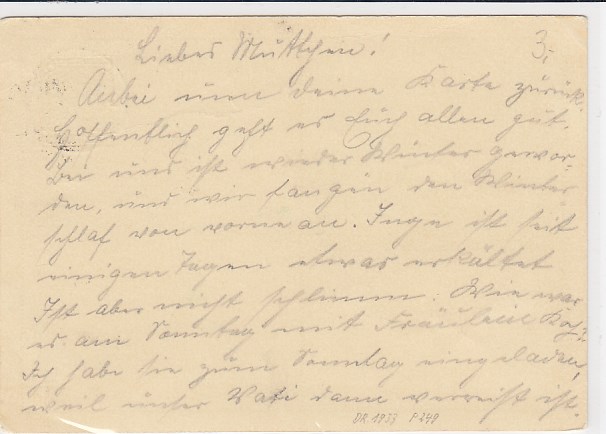 Liebes Muttchen!
3,-
Anbei nun deine Karte zurück.
Hoffentlich geht es Euch allen gut.
Bei uns ist wieder Winter gewor-
den, und wir fangen den Winter
schlaf von vorne an. Inge ist seit
einigen Tagen etwas erkältet
Ist aber nicht schlimm. Wie war
es am Sonntag mit Fräulein
Ich habe sie zum Sonntag eingeladen,
weil unser Vati dann verreist ist.
DR 1933 P 249